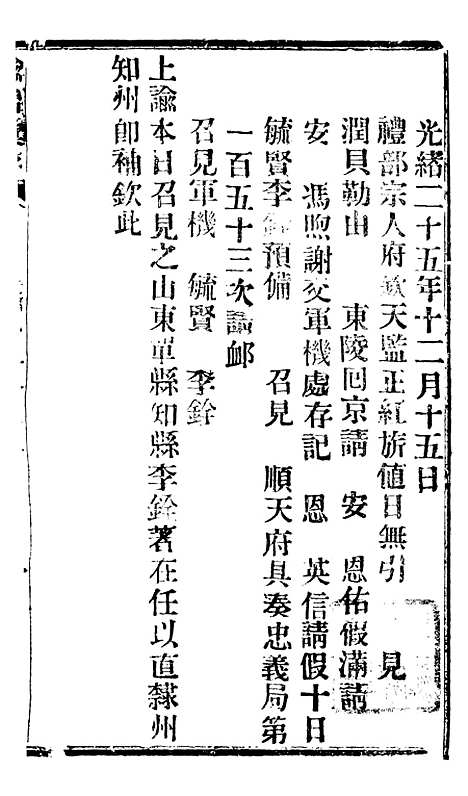 光緒二十五年十二月十五日
禮部宗人府欽天監正紅旂値日無引　見
潤貝勒由　東陵囘京請　安　恩佑假滿請
安　馮煦謝交軍機處存記　恩　英信請假十日
毓賢李銓預備　召見　順天府具奏忠義局第
一百五十三次請卹
召見軍機　毓賢　李銓
上諭本日召見之山東單縣知縣李銓著在任以直隸州
知州卽補欽此